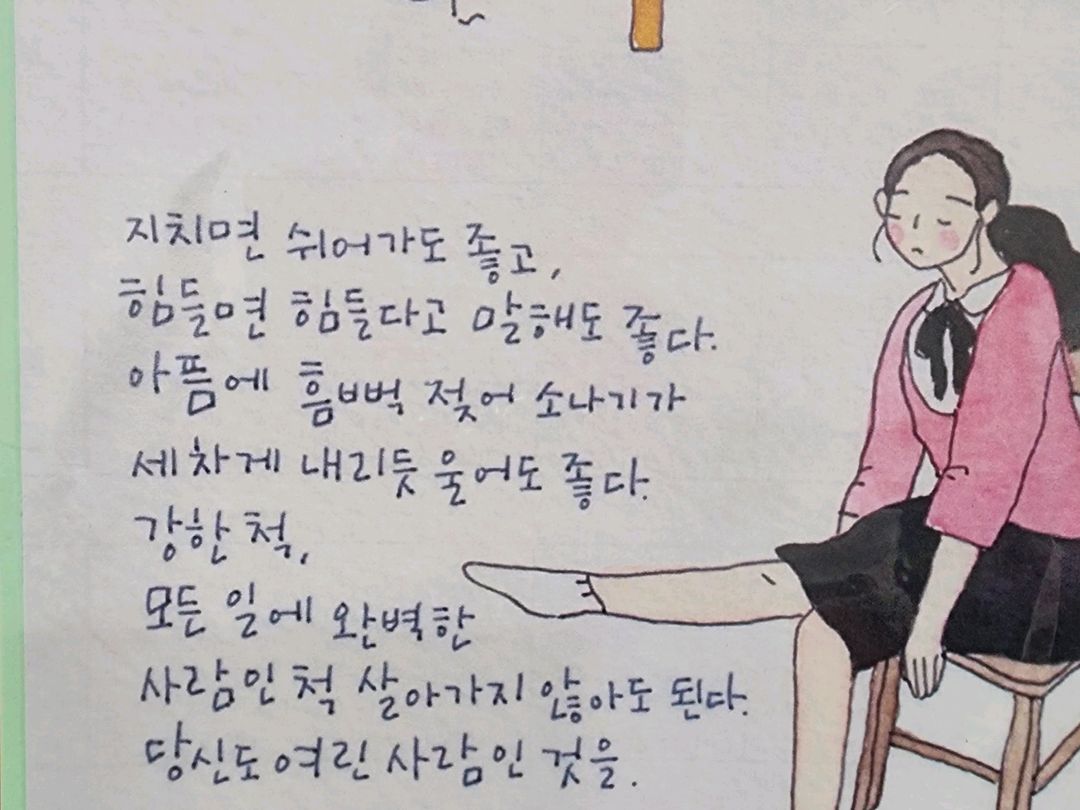 지치면 쉬어가도 좋고,
힘들면 힘들다고 말해도 좋다.
아픔에 흠뻑 젖어 소나기가
세차게 내리듯 울어도 좋다.
강한 척,
모든 일에 완벽한
사람인 척 살아가지 않아도 된다.
당신도 여린 사람인 것을.